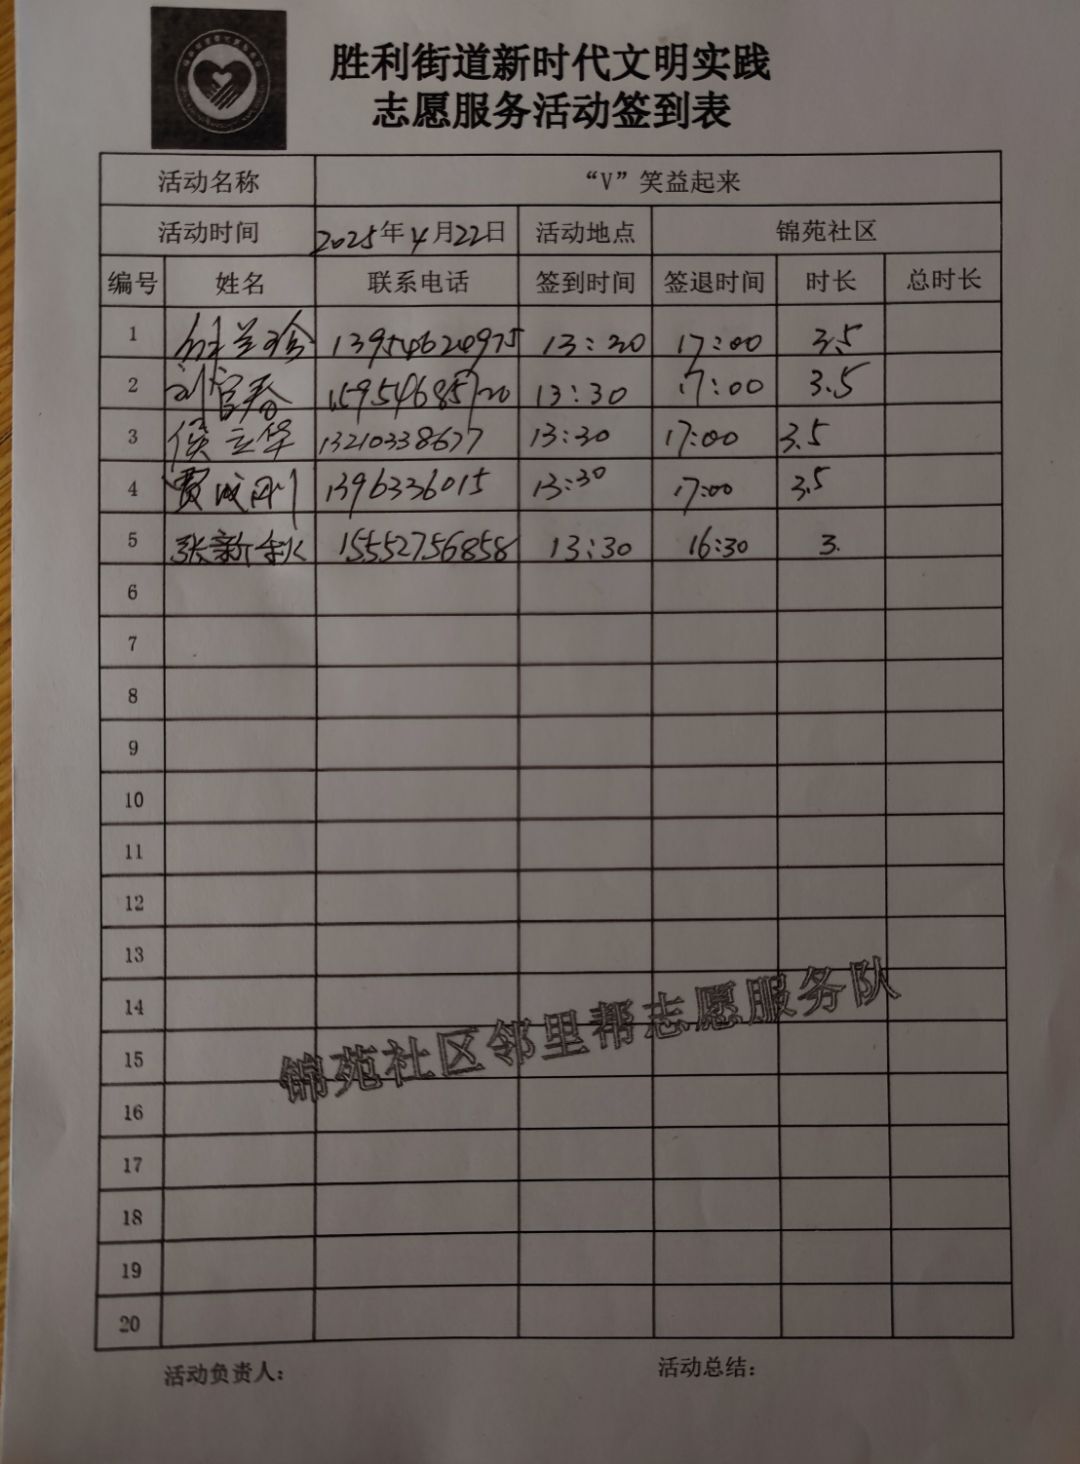 胜利街道新时代文明实践
志愿服务活动签到表
活动名称 “V”笑益起来
活动时间 2025年4月22日 活动地点 锦苑社区
编号 姓名 联系电话 签到时间 签退时间 时长 总时长
1 兰珍 13954620975 13:20 17:00 3.5
2 刘官春 13:30 17:00 3.5
3 侯立华 13210338677 13:30 17:00 3.5
4 费成刚 1396336015 13:30 17:00 3.5
5 张新秋 15552756858 13:30 16:30 3.
6
7
8
9
10
11
12
13
14
15
锦苑社区邻里帮志愿服务队
16
17
18
19
20
活动负责人: 活动总结: